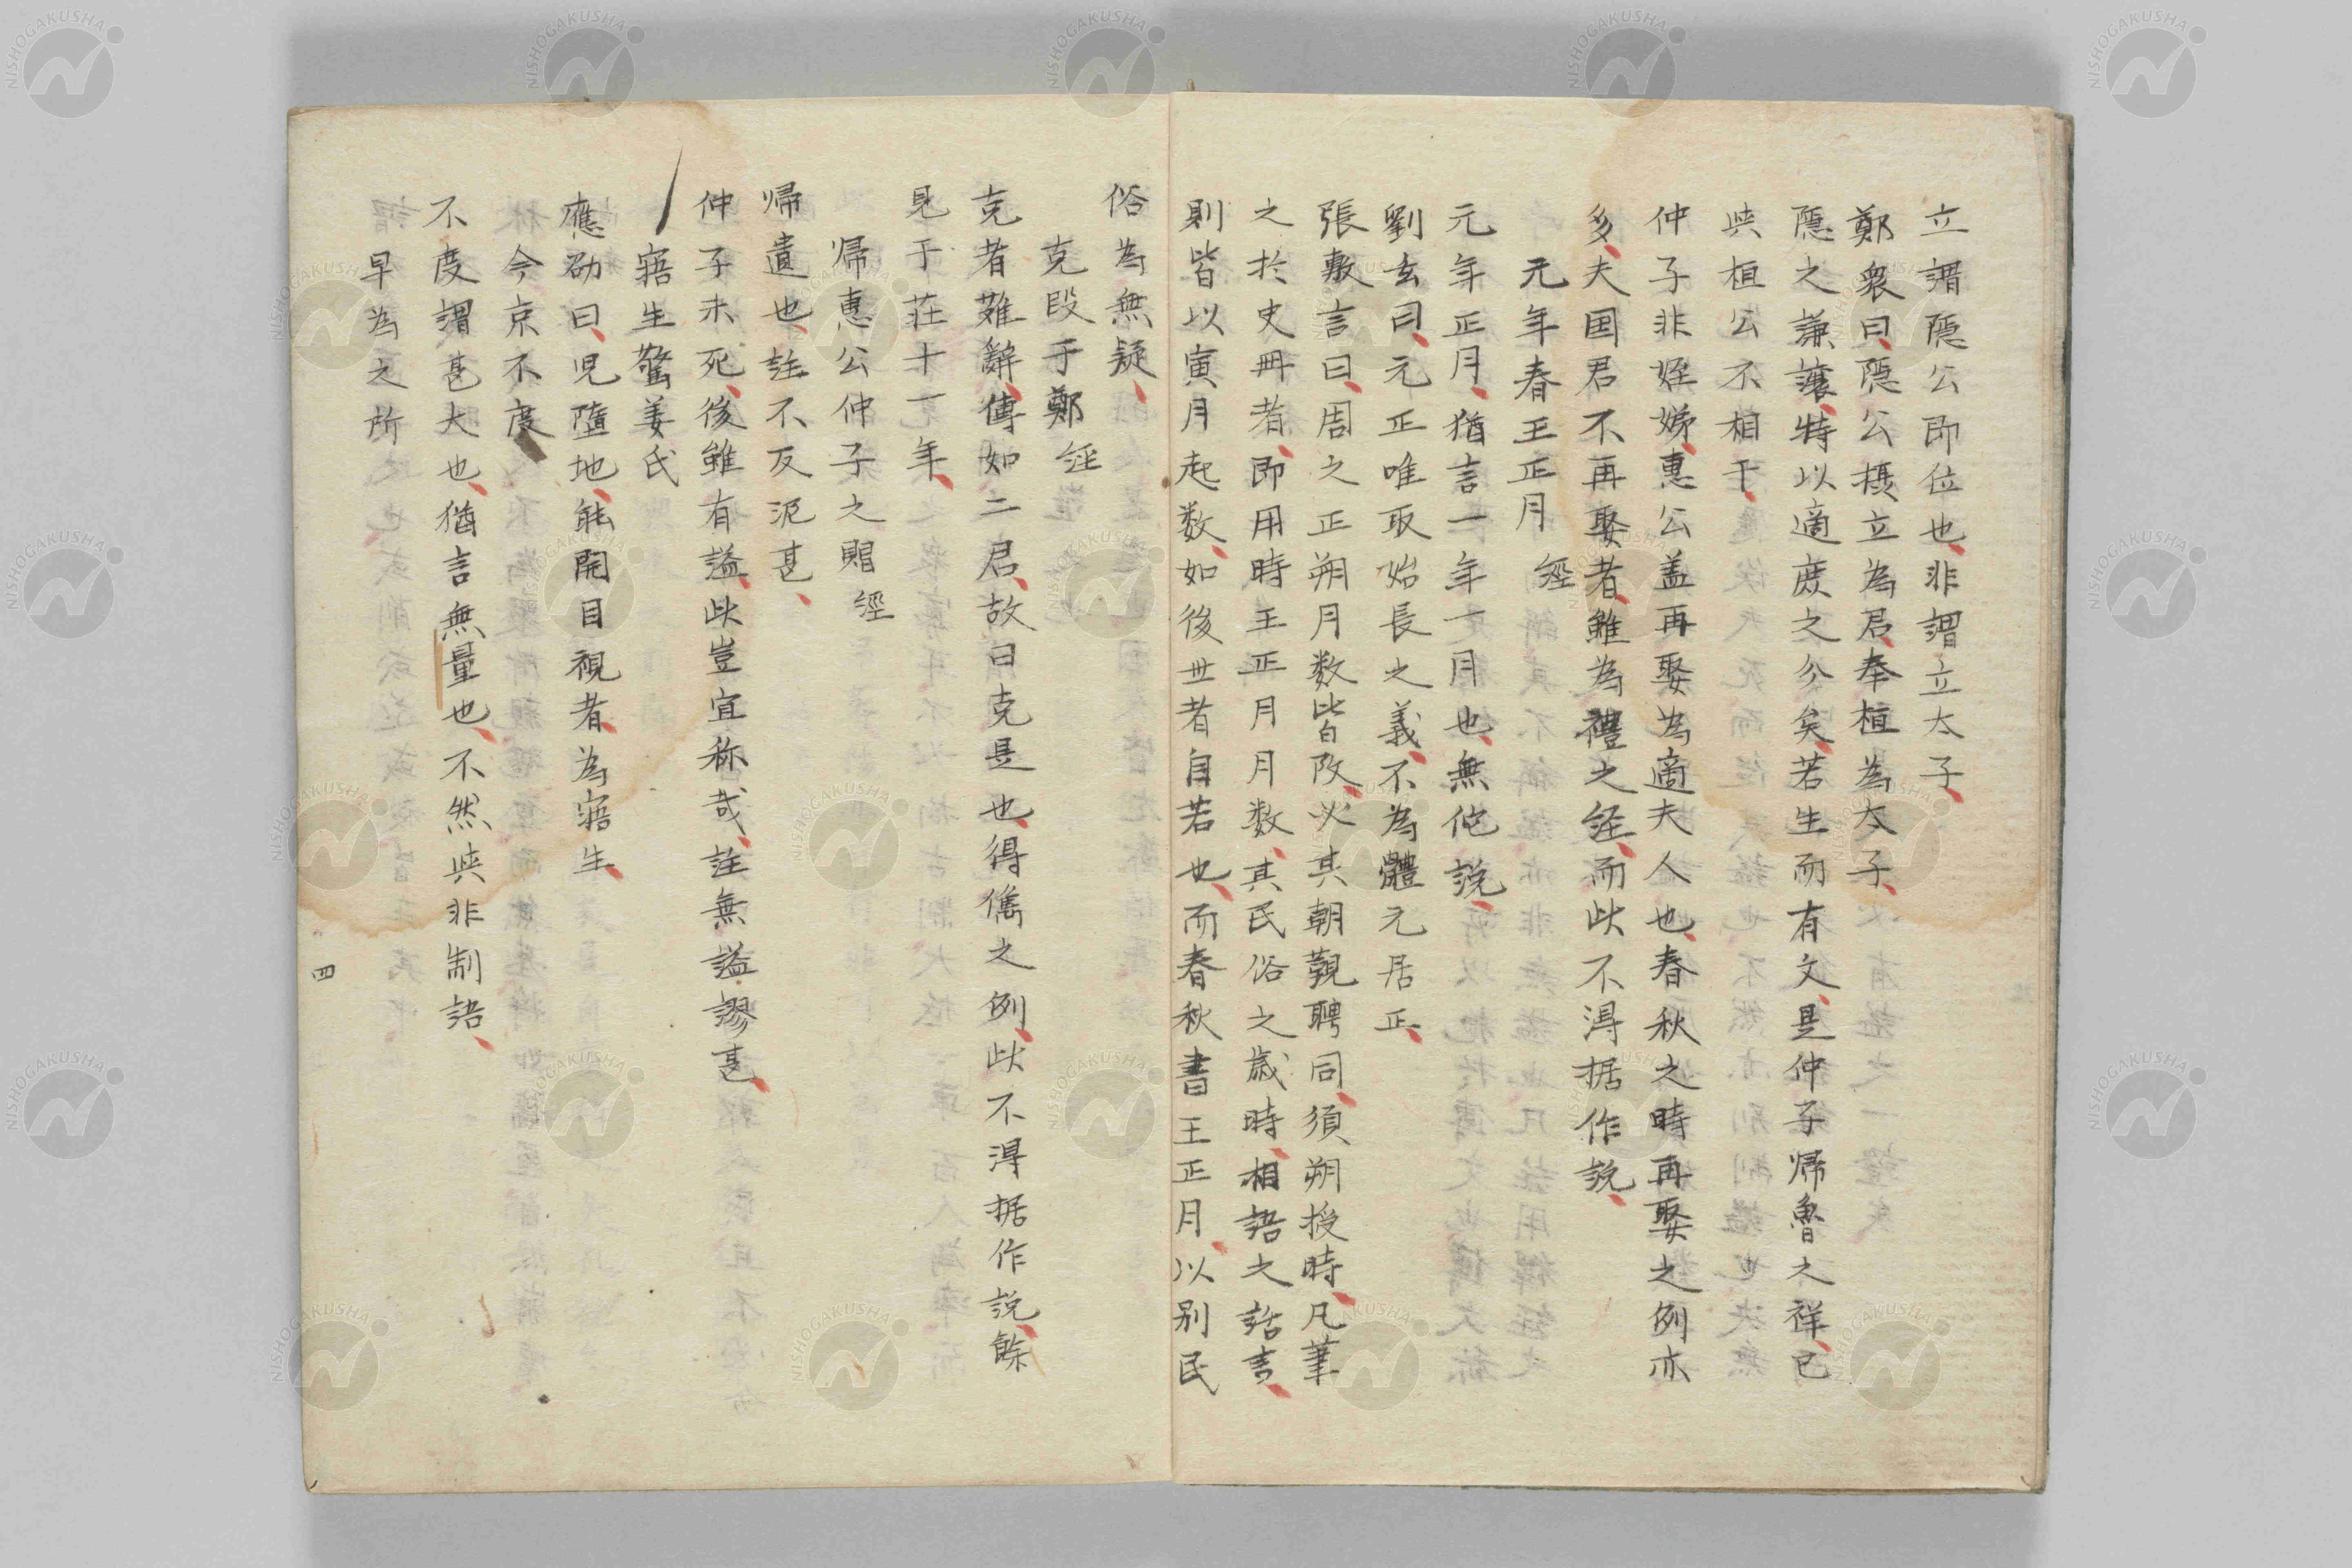 立謂隱公即位也、非謂立太子、
鄭衆曰、隱公攝立為君、奉桓為太子、
隱之謙讓、特以適庶之分矣、若生而有文、是仲子歸魯之祥、已
與桓公不相干、
仲子非姪娣、惠公盖再娶為適夫人也、春秋之時再娶之例亦
多、夫国君不再娶者、雖為禮之経、而此不得据作說、
元年春王正月 経
元年正月、猶言一年一月也、無他說、
劉玄曰、元正唯取始長之義、不為體元居正、
張敷言曰、周之正朔月数皆改、必其朝覲聘同、須朔授時、凡筆
之於史冊者、即用時王正月月数、其民俗之歳時、相語之話言、
則皆以寅月起数、如後世者自若也、而春秋書王正月、以别民
俗為無疑、
克段于鄭 経
克者難辭、傳如二君、故曰克是也、得儁之例、此不得据作說、餘
見于莊十一年、
帰惠公仲子之賵 經
帰遺也、註不反泥甚、
仲子未死、後雖有謚、此豈宜称哉、註無謚謬甚、
寤生驚姜氏
應劭曰、児墮地、能開目視者、為寤生、
今京不度
不度謂甚大也、猶言無量也、不然與非制語、
早為之所
四
NISHOGAKUSHA